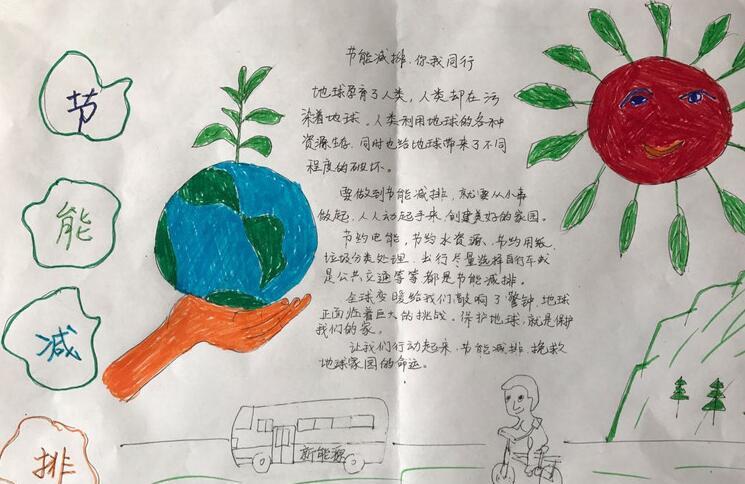 节
能
减
排
节能减排、你我同行
地球孕育了人类，人类却在污
染着地球。人类利用地球的各种
资源生存，同时也给地球带来了不同
程度的破坏。
要做到节能减排，就要从小事
做起，人人动起手来，创建美好的家园。
节约电能，节约水资源、节约用纸、
垃圾分类处理，出行尽量选择自行车或
是公共交通等等都是节能减排。
全球变暖给我们敲响了警钟，地球
正面临着巨大的挑战。保护地球，就是保护
我们的家。
让我们行动起来，节能减排，挽救
地球家园的命运。
新能源